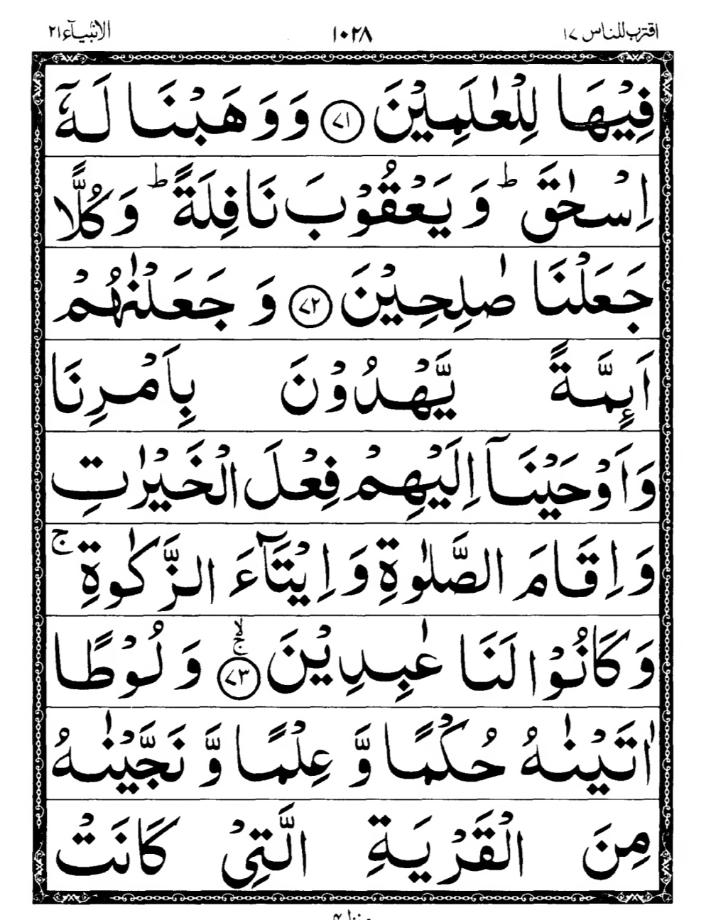 اقترب للناس ١٧ ١٠٢٨ الانبياء ٢١
فِيْهَا لِلْعٰلَمِيْنَ ﴿٧١﴾ وَوَهَبْنَا لَهٗۤ
اِسْحٰقَ ؕ وَيَعْقُوْبَ نَافِلَةً ؕ وَكُلًّا
جَعَلْنَا صٰلِحِيْنَ ﴿٧٢﴾ وَجَعَلْنٰهُمْ
اَىِٕمَّةً يَّهْدُوْنَ بِاَمْرِنَا
وَاَوْحَيْنَاۤ اِلَيْهِمْ فِعْلَ الْخَيْرٰتِ
وَاِقَامَ الصَّلٰوةِ وَاِيْتَآءَ الزَّكٰوةِ ۚ
وَكَانُوْا لَنَا عٰبِدِيْنَ ۚۙ ﴿٧٣﴾ وَلُوْطًا
اٰتَيْنٰهُ حُكْمًا وَّ عِلْمًا وَّ نَجَّيْنٰهُ
مِنَ الْقَرْيَةِ الَّتِيْ كَانَتْ